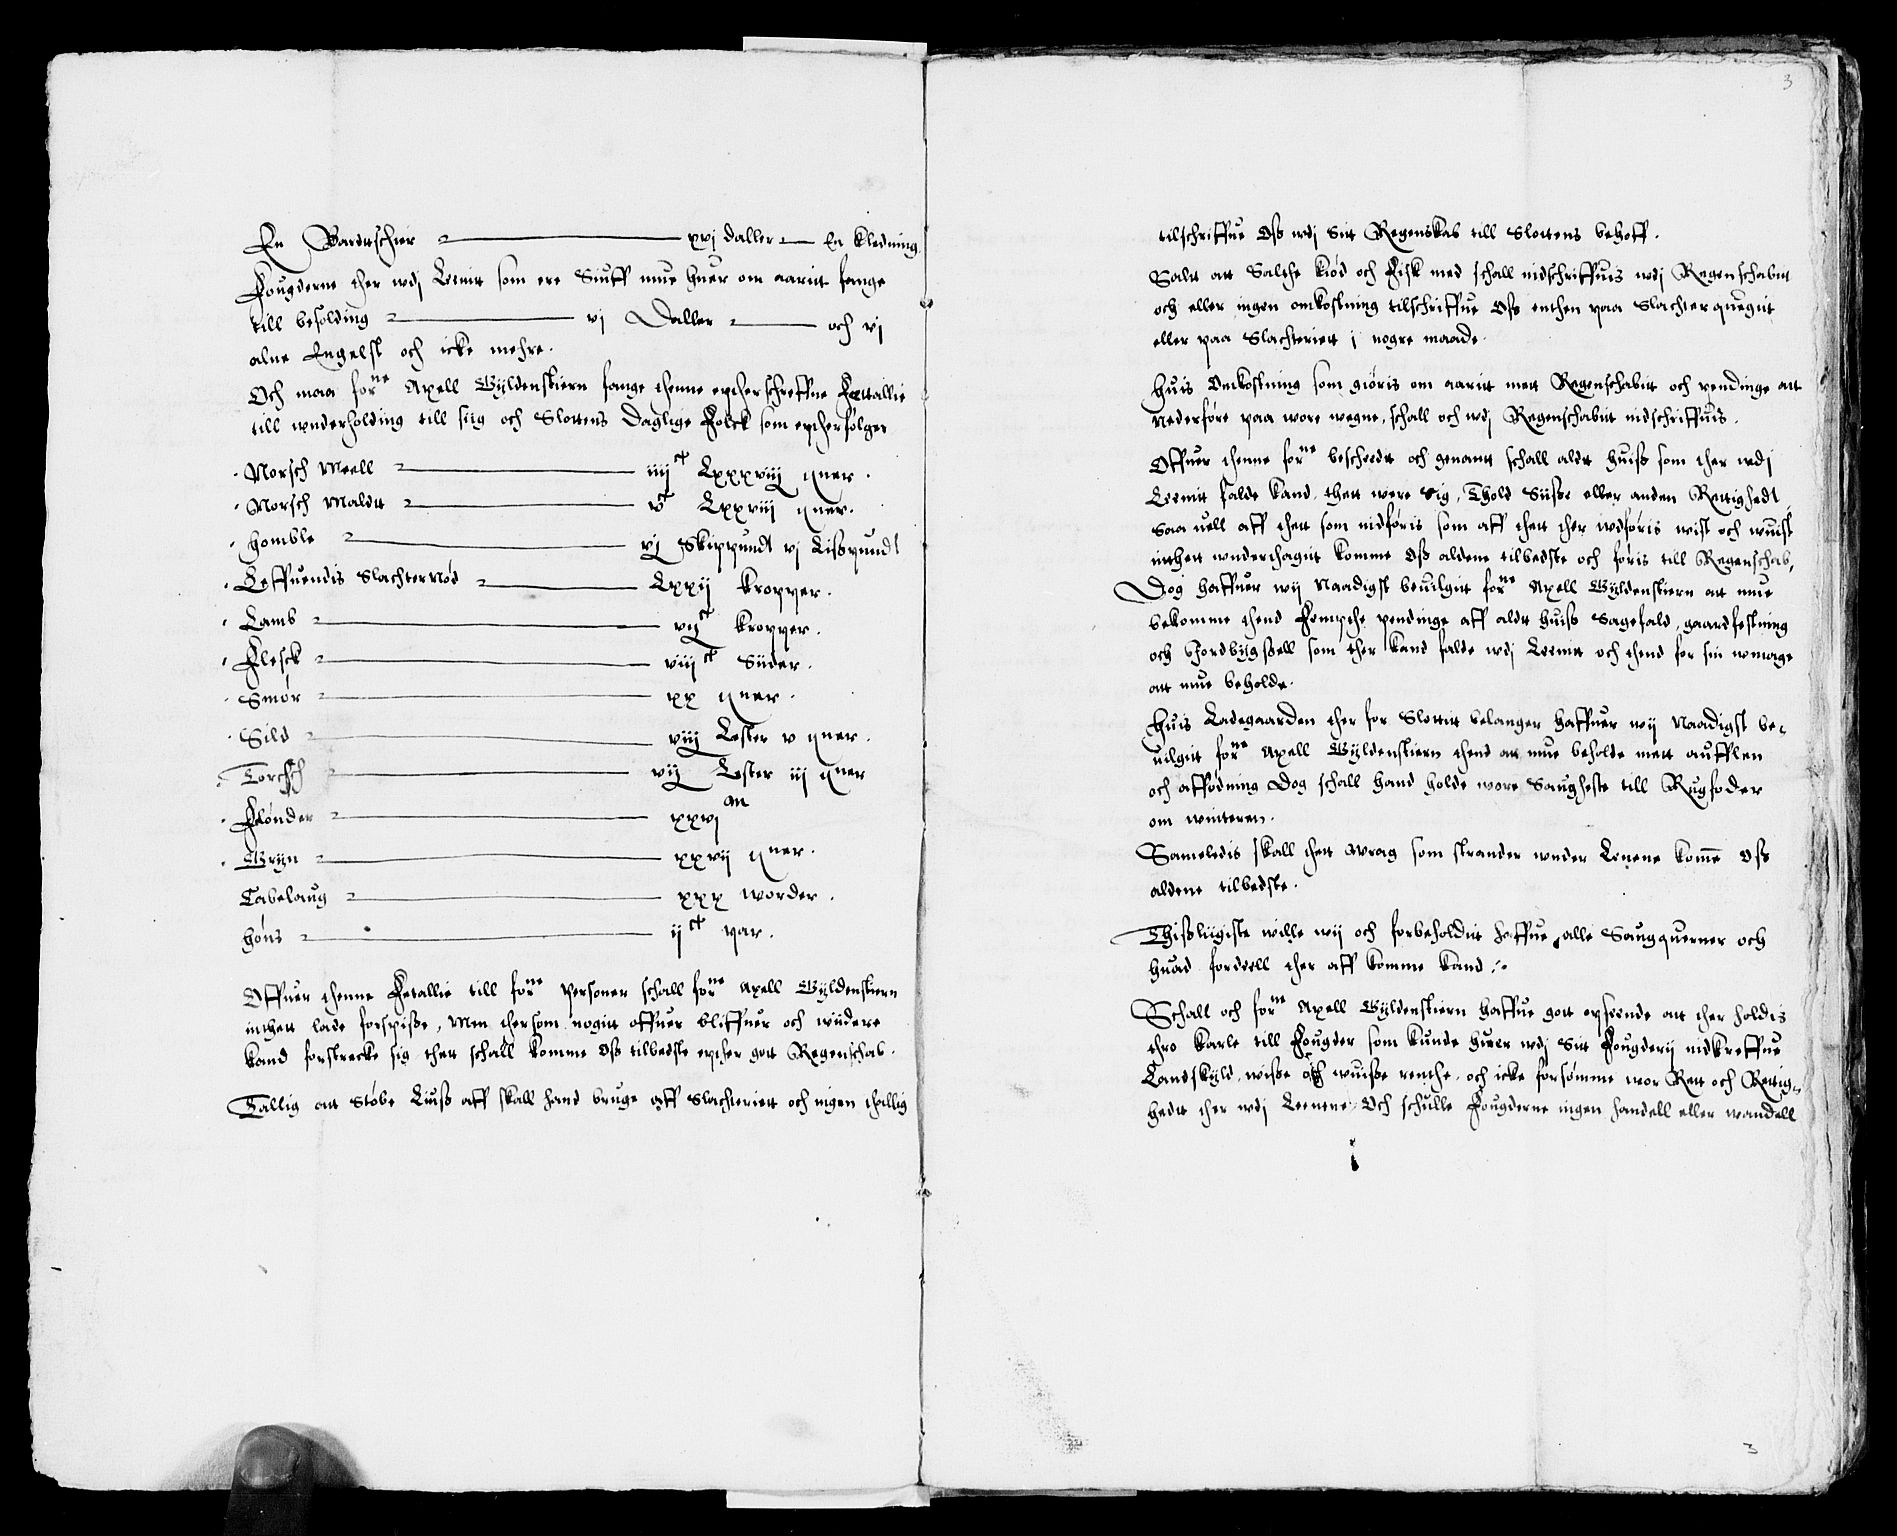 En Bardtscher — xvj daller — En kledning.
Fougderne ther wdj Leenit som ere Siuff mue huer om aarit fange
till besolding — vj Daller — och vj
alne Engelst och icke mehre.
Och maa forne Axell Gyldenstiern fange thenne epther schreffne Fettallie
till wnderholding till siig och Slottens Daglige Folck som eptherfølger
Norsch Meell — iiijct Lxxxviij tner.
Norsch Maldtt — vct Lxxviij tner.
Homble — vj Skippundt vj Lisspundt
Leffuendis Slachter Nød — Lxxij kropper.
Lamb — vijct kropper.
Flesck — viijct Siider.
Smør — xx tner.
Sild — viij Lester v tner.
Torsch — vij Lester iij tner
Flønder — xxvj m
Gryn — xxvij tner.
Cabelaug — xxx worder.
Høns — ijct par.
Offuer thenne Fetallie till forne Personer schall forne Axell Gyldenstiern
inthett lade forspisse, Men thersom nogitt offuer bliffuer och wiidere
kand forstrecke sig thett schall komme oss tilbedste epther gott Regenschab.
Tallig att Støbe Liuss aff skall hand bruge aff Slachteriett och ingen thallig
3
tilschriffue Oss wdj Sitt Regenskab till Slottens behoff.
Saltt att Salthe kiød och Fisk med schall indschriffuis wdj Regenschabitt
och eller ingen omkostning tilschriffue Oss enthen paa Slachter quegitt
eller paa Slachteriett i nogre maade.
Huis Omkostning som giøris om aaritt mett Regenschabitt och pendinge att
Nederføre paa wore wegne, schall och wdj Regenschabitt indschriffuis.
Offuer thenne forne bescheedtt och genantt schall aldtt huiss som ther wdj
Leenitt falde kand, thett were Sig, Thold Siisse eller anden Rettighedt,
Saa uell aff thett som indføris som aff thett ther wdføris wist och wuist
inthett wnderthagitt komme Oss aldene tilbedste och føris till Regenschab,
Dog haffuer wij Naadigst beuilgitt forne Axell Gyldenstiern att mue
bekomme thend Fempthe pendinge aff aldtt huiss Sagefald, gaardfestning
och Jordbygssell som ther kand falde wdj Leenitt och thend for sin wmage
att mue beholde.
Huis Ladegaarden ther for Slottitt belanger haffuer wij Naadigst be-
uilgitt forne Axell Gyldenstiern thend att mue beholde mett aufflen
och affødning Dog schall hand holde wore Saugheste till Rugfoder
om winteren.
Sameledis skall thett wrag som strander wnder Lenene kome oss
aldene tilbedste.
Thissliigiste wille wij och forbeholditt haffue alle Saugquerner och
huad fordeell ther aff komme kand.
Schall och forne Axell Gyldenstiern haffue gott opseende att ther holdis
thro karle till Fougder som kunde huer wdj Sitt Fougderij indkreffue
Landskyld, wisse och wuisse renthe, och icke forsømme wor Rett och Rettig-
hedtt ther wdj Leenene. Och schulle Fougderne ingen handell eller wandell
3